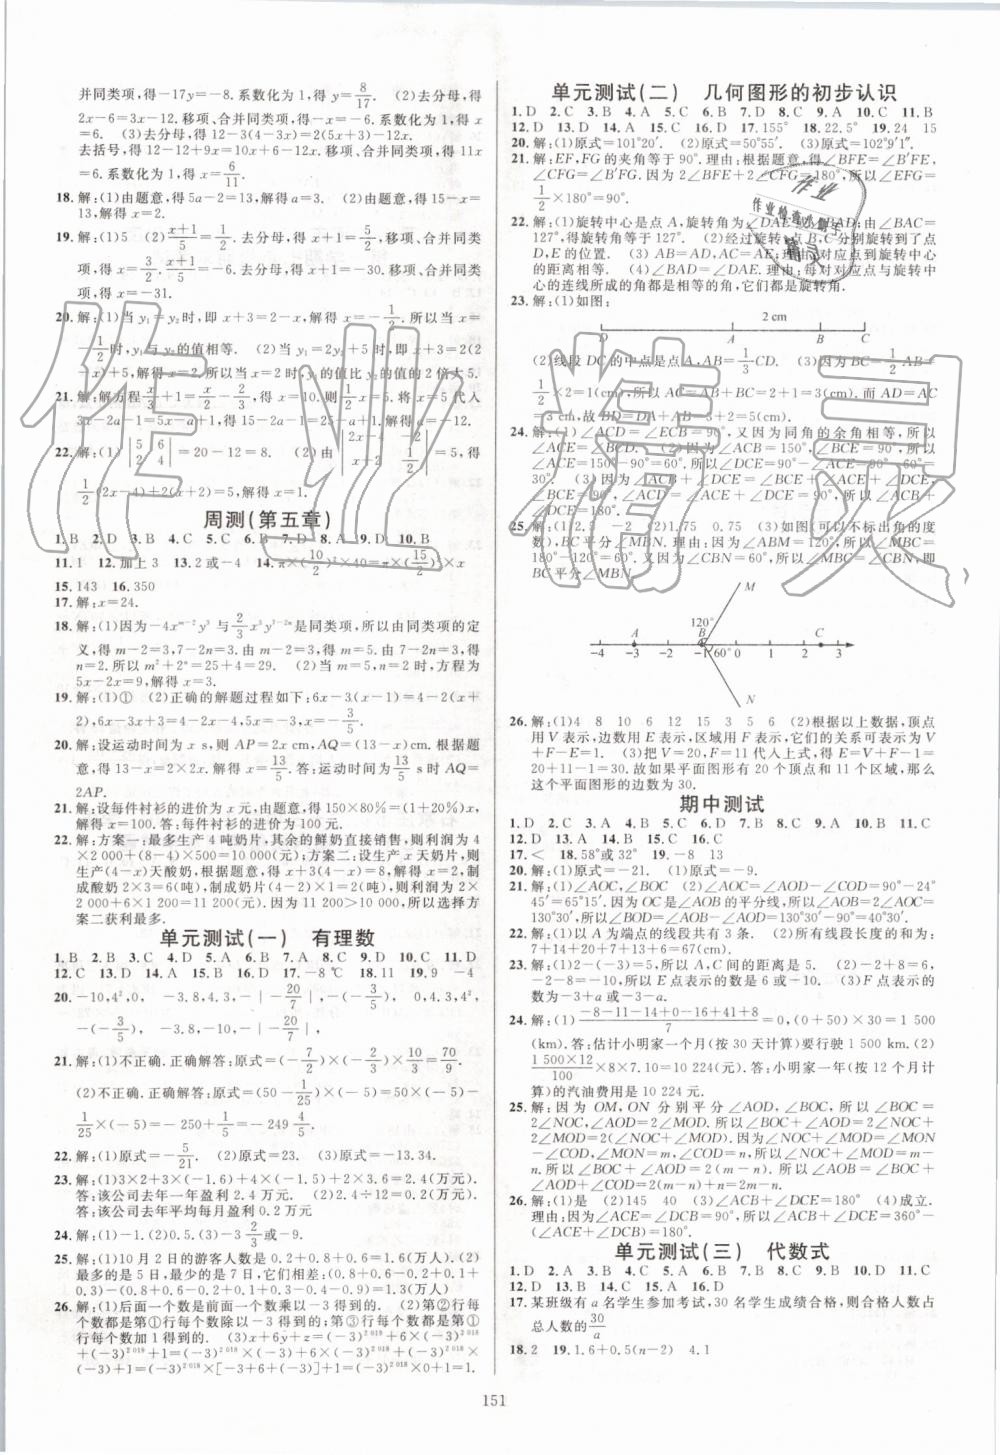 并同类项,得-17y=-8.系数化为1,得y=8/17. (2)去分母,得
2x-6=3x-12.移项、合并同类项,得-x=-6.系数化为1,得x
=6. (3)去分母,得12-3(4-3x)=2(5x+3)-12x.
去括号,得12-12+9x=10x+6-12x.移项、合并同类项,得11x
=6.系数化为1,得x=6/11.
18.解:(1)由题意,得5a-2=13,解得a=3. (2)由题意,得15-x=
13,解得x=2.
19.解:(1)5 (2)(x+1)/5=1/2.去分母,得x+1=5/2.移项、合并同类
项,得x=3/2.(x+1)/5=-6.去分母,得x+1=-30.移项、合并同类
项,得x=-31.
20.解:(1)当y₁=y₂时,即x+3=2-x.解得x=-1/2.所以当x=
-1/2时,y₁与y₂的值相等. (2)当y₁=2y₂+5时,即x+3=2(2
-x)+5,解得x=2.所以当x=2时,y₁的值比y₂的值的2倍大5.
21.解:解方程x/3+1=x/2-2/3,得x=10.则1/2x=5.将x=5代入
3x-2a-1=5x-a+1,得15-2a-1=25-a+1.解得a=-12.
22.解:(1)|5 6; 2 4|=20-12=8. (2)由|1/2 -2; 2x-4 4|=5,得
1/2(2x-4)+2(x+2)=5,解得x=1.
周测(第五章)
1.B 2.D 3.B 4.C 5.C 6.B 7.D 8.A 9.D 10.B
11.1 12.加上3 13.2或-4 14.π×(10/2)²×40=π×(15/2)²×x
15.143 16.350
17.解:x=24.
18.解:(1)因为-4xᵐ⁻²y³与2/3x³y⁷⁻²ⁿ是同类项,所以由同类项的定
义,得m-2=3,7-2n=3.由m-2=3,得m=5.由7-2n=3,得
n=2.所以m²+2ⁿ=25+4=29. (2)当m=5,n=2时,方程为
5x-2x=9,解得x=3.
19.解:(1)① (2)正确的解题过程如下:6x-3(x-1)=4-2(x+
2),6x-3x+3=4-2x-4,6x-3x+2x=-3,5x=-3,x=-3/5.
20.解:设运动时间为x s,则AP=2x cm,AQ=(13-x)cm.根据题
意,得13-x=2×2x.解得x=13/5.答:运动时间为13/5 s时AQ=
2AP.
21.解:设每件衬衫的进价为x元.由题意,得150×80%=(1+20%)x,
解得x=100.答:每件衬衫的进价为100元.
22.解:方案一:最多生产4吨奶片,其余的鲜奶直接销售,则利润为4
×2 000+(8-4)×500=10 000(元);方案二:设生产x天奶片,则
生产(4-x)天酸奶,根据题意,得x+3(4-x)=8,解得x=2.则制
成酸奶2×3=6(吨),制成奶片(4-2)×1=2(吨),故利润为2×
2 000+6×1 200=11 200(元).因为11 200>10 000,所以选择方
案二获利最多.
单元测试(一) 有理数
1.B 2.B 3.C 4.D 5.A 6.C 7.A 8.C 9.D 10.C 11.D
12.C 13.D 14.A 15.D 16.D 17.-8℃ 18.11 19.9 -4
20.-10,4²,0, -3.8,4.3,-|-20/7|,-(-3/5), 0,4.3,4²,
-(-3/5), -3.8,-10,-|-20/7|
21.解:(1)不正确.正确解答:原式=(-7/2)×(-3/5)×10/3=70/9.
(2)不正确.正确解答:原式=(250-1/25)×(-5)=250×(-5)-
1/25×(-5)=-1 250+1/5=-1 249 4/5.
22.解:(1)原式=-5/21. (2)原式=23. (3)原式=-13.34.
23.解:(1)3×2+3×(-1.6)+4×(-1.5)+2×3.6=2.4(万元).
答:该公司去年一年盈利2.4万元. (2)2.4÷12=0.2(万元).
答:该公司去年平均每月盈利0.2万元
24.解:(1)-1.(2)0.5.(3)-3 2/3或-9.
25.解:(1)10月2日的游客人数是0.2+0.8+0.6=1.6(万人).(2)
最多的是5日,最少的是7日,它们相差:(0.8+0.6-0.2-0.1+
0.3)-(0.8+0.6-0.2-0.1+0.3-0.4-0.9)=1.3(万人)
26.解:(1)后面一个数是前面一个数乘以-3得到的. (2)第②行每
个数都是第①行每个数除以-3得到的;第③行每个数都是第①
行每个数加1得到的. (3)x+y+z=(-3)²⁰¹⁹+6×(-3)²⁰¹⁸
+(-3)²⁰¹⁸=(-3)×(-3)²⁰¹⁸+6×(-3)²⁰¹⁸+(-3)×
(-3)²⁰¹⁸+1=(-3)²⁰¹⁸×[-3+6+(-3)]+1=(-3)²⁰¹⁸×0+1=1.
单元测试(二) 几何图形的初步认识
1.D 2.C 3.B 4.A 5.C 6.B 7.D 8.C 9.A 10.C 11.B
12.D 13.D 14.A 15.C 16.D 17.155° 18.22.5° 19.24 15
20.解:(1)原式=101°20′. (2)原式=50°55′. (3)原式=102°9′1″.
21.解:EF,FG的夹角等于90°.理由:根据题意,得∠BFE=∠B′FE,
∠CFG=∠B′FG.因为2∠BFE+2∠CFG=180°,所以∠EFG=
1/2×180°=90°.
22.解:(1)旋转中心是点A,旋转角为∠DAE或∠BAD;由∠BAC=
127°,得旋转角为127°. (2)经过旋转,点B,C分别旋转到了点
D,E的位置. (3)AB=AD=AC=AE;理由:对应点到旋转中心
的距离相等. (4)∠BAD=∠DAE=∠CAE;理由:每对对应点与旋转中心
的连线所成的角都是相等的角,它们都是旋转角.
23.解:(1)如图:
2 cm
D A B C
(2)线段DC的中点是点A,AB=1/3CD. (3)因为BC=1/2AB=
1/2×2=1(cm),所以AC=AB+BC=2+1=3(cm).而AD=AC
=3 cm,故BD=DA+AB=3+2=5(cm).
24.解:(1)∠ACD=∠ECB=90°,又因为同角的余角相等,所以
∠ACE=∠BCD. (2)因为∠ACB=150°,∠BCE=90°,所以
∠ACE=150°-90°=60°.所以∠DCE=90°-∠ACE=90°-60°=
30°. (3)因为∠ACB+∠DCE=∠ACD+∠BCD+∠DCE,
∠BCE=∠ACD=90°,∠ACD=∠ACE+∠DCE,所以∠ACB+
∠DCE=180°.
25.解:(1)2.5 -2 (2)1.75 0.75 (3)如图(可以不标出角的度
数),BC平分∠MBN.理由:因为∠ABM=120°,所以∠MBC=
180°-120°=60°.又因为∠CBN=60°,所以∠MBC=∠CBN,即
BC平分∠MBN.
M
120°
A B C
-4 -3 -2 -1 60° 0 1 2 3
N
26.解:(1)4 8 10 6 12 15 5 6 6 (2)根据以上数据,顶点
用V表示,边数用E表示,区域用F表示,它们的关系可表示为V
+F-E=1. (3)把V=20,F=11代入上式,得E=V+F-1=
20+11-1=30.故如果平面图形有20个顶点和11个区域,那么
这个平面图形的边数为30.
期中测试
1.D 2.B 3.B 4.A 5.C 6.D 7.B 8.C 9.A 10.B 11.C
12.D 13.C 14.B 15.C 16.C
17.< 18.58°或32° 19.-8 13
20.解:(1)原式=-21. (1)原式=-9.
21.解:(1)∠AOC,∠BOC (2)∠AOC=∠AOD-∠COD=90°-24°
45′=65°15′.因为OC是∠AOB的平分线,所以∠AOB=2∠AOC=
130°30′.所以∠BOD=∠AOB-∠AOD=130°30′-90°=40°30′.
22.解:(1)以A为端点的线段共有3条. (2)所有线段长度的和为:
7+14+20+7+13+6=67(cm).
23.解:(1)2-(-3)=5,所以A,C间的距离是5. (2)-2+8=6,
-2-8=-10,所以E点表示的数是6或-10. (3)F点表示的
数为-3+a或-3-a.
24.解:(1)(-8-11-14+0-16+41+8)/7=0,(0+50)×30=1 500
(km).答:估计小明家一个月(按30天计算)要行驶1 500 km.(2)
1 500×12/100×8×7.10=10 224(元).答:小明家一年(按12个月计
算)的汽油费用是10 224元.
25.解:因为OM,ON分别平分∠AOD,∠BOC,所以∠BOC=
2∠NOC,∠AOD=2∠MOD.所以∠BOC+∠AOD=2∠NOC+
2∠MOD=2(∠NOC+∠MOD).因为∠NOC+∠MOD=∠MON
-∠COD,∠MON=m,∠COD=n,所以∠NOC+∠MOD=m-
n.所以∠BOC+∠AOD=2(m-n)=2m-2n.
26.解:(1)是 (2)145 40 (3)∠ACB+∠DCE=180° (4)成立.
理由:因为∠ACE=∠DCB=90°,所以∠ACB+∠DCE=360°-
(∠ACE+∠DCB)=180°.
单元测试(三) 代数式
1.D 2.A 3.B 4.C 5.C 6.B 7.D 8.C 9.A 10.D 11.C
12.D 13.B 14.C 15.A 16.D
17.某班级有a名学生参加考试,30名学生成绩合格,则合格人数占
总人数的30/a
18.2 19.1.6+0.5(n-2) 4.1
151
作业精灵
作业
作业精灵小助手
精灵